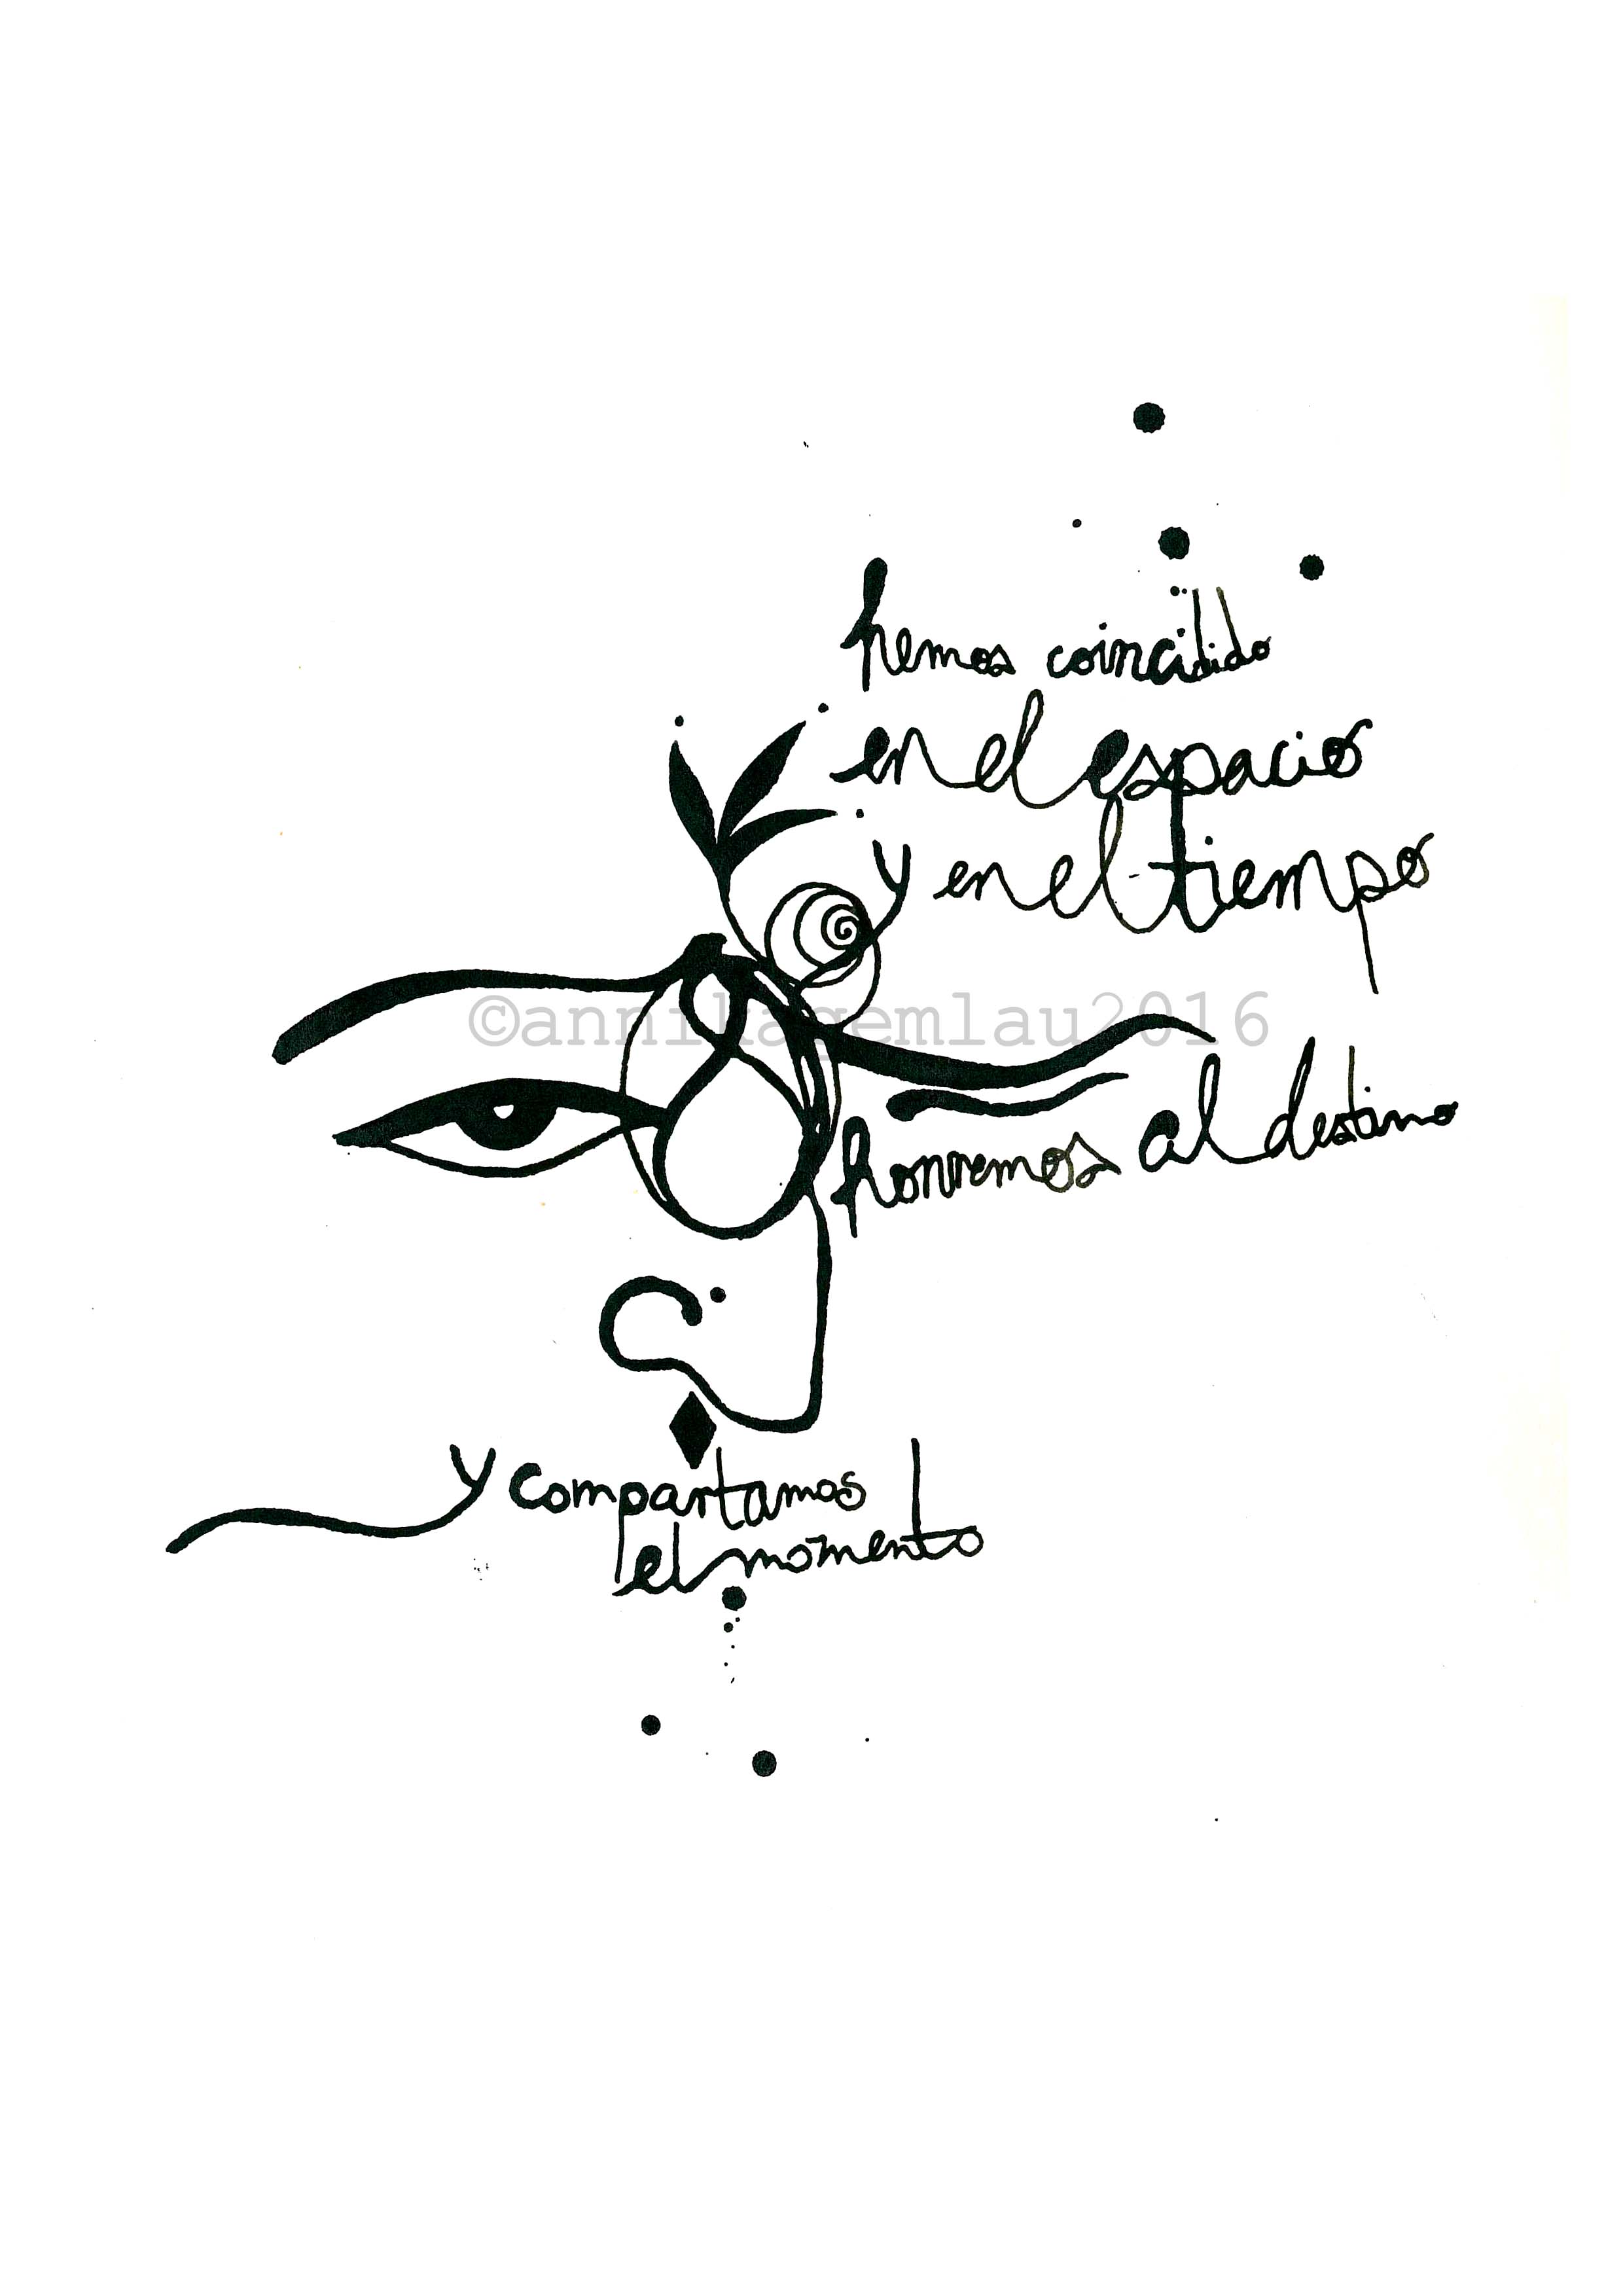 hemos coincidido
en el espacio
y en el tiempo
©annikagemlau2016
honremos al destino
y compartamos
el momento